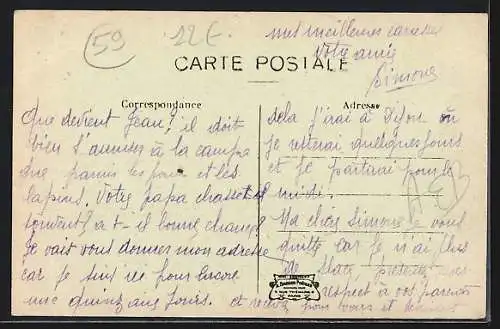 59
12€
mes meilleures caresses
Votre amie
Simone
CARTE POSTALE
Correspondance
Adresse
Que devient Jean? il doit
bien s'amuser à la campa
gne parmi les poules et les
lapins. Votre papa chasse t-il
souvent? a-t-il bonne chance?
Je vais vous donner mon adresse
car je suis ici pour encore
une quinzaine jours. et
dela j'irai à Dijon où
je resterai quelques jours
et je partirai pour le
midi.
Ma chère Simone je vous
quitte car je n'ai plus
de place, présentez mes
respect à vos parents
pour vous et